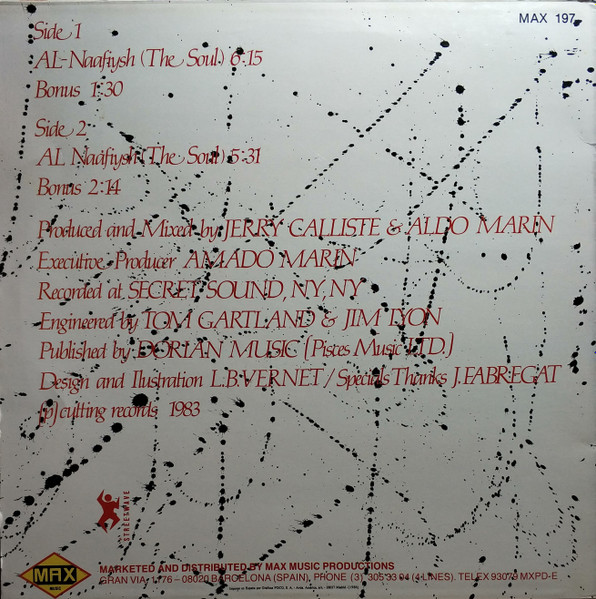 MAX 197
Side 1
AL-Naafiysh (The Soul) 6:15
Bonus 1:30
Side 2
AL Naafiysh (The Soul) 5:31
Bonus 2:14
Produced and Mixed by JERRY CALLISTE & ALDO MARIN
Executive Producer AMADO MARIN
Recorded at SECRET SOUND, NY, NY
Engineered by TOM GARTLAND & JIM LYON
Published by DORIAN MUSIC (Pistes Music LTD.)
Design and Ilustration L.B.VERNET / Specials Thanks J.FABREGAT
(p) cutting records 1983
STREETWAVE
MAX
MUSIC
MARKETED AND DISTRIBUTED BY MAX MUSIC PRODUCTIONS
GRAN VIA, 1176 – 08020 BARCELONA (SPAIN), PHONE (3) 305 33 04 (4 LINES). TELEX 93079 MXPD-E